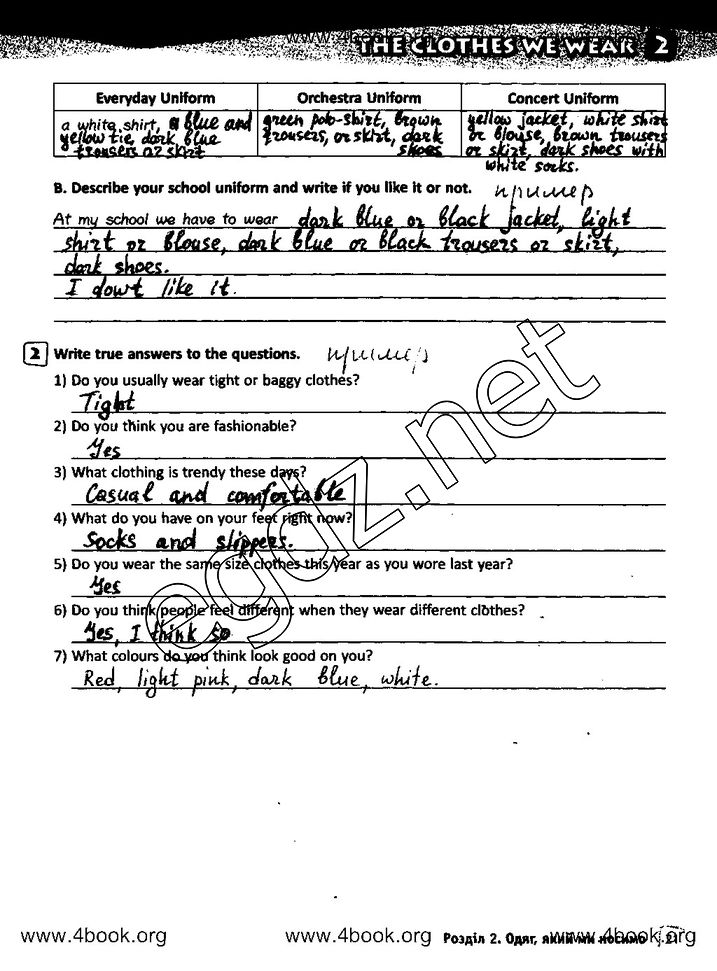 www.4book.org
THE CLOTHES WE WEAR 2
Everyday Uniform Orchestra Uniform Concert Uniform
a white shirt, a blue and
yellow tie, dark blue
trousers or skirt
green polo-shirt, brown
trousers, or skirt, dark
shoes
yellow jacket, white shirt
or blouse, brown trousers
or skirt, dark shoes with
white socks.
B. Describe your school uniform and write if you like it or not. пример
At my school we have to wear dark blue or black jacket, light
shirt or blouse, dark blue or black trousers or skirt,
dark shoes.
I don't like it.
2 Write true answers to the questions. пример
1) Do you usually wear tight or baggy clothes?
Tight
2) Do you think you are fashionable?
Yes
3) What clothing is trendy these days?
Casual and comfortable
4) What do you have on your feet right now?
Socks and slippers.
5) Do you wear the same size clothes this year as you wore last year?
Yes
6) Do you think people feel different when they wear different clothes?
Yes, I think so
7) What colours do you think look good on you?
Red, light pink, dark blue, white.
egdz.net
www.4book.org www.4book.org Розділ 2. Одяг, який ми носимо 21